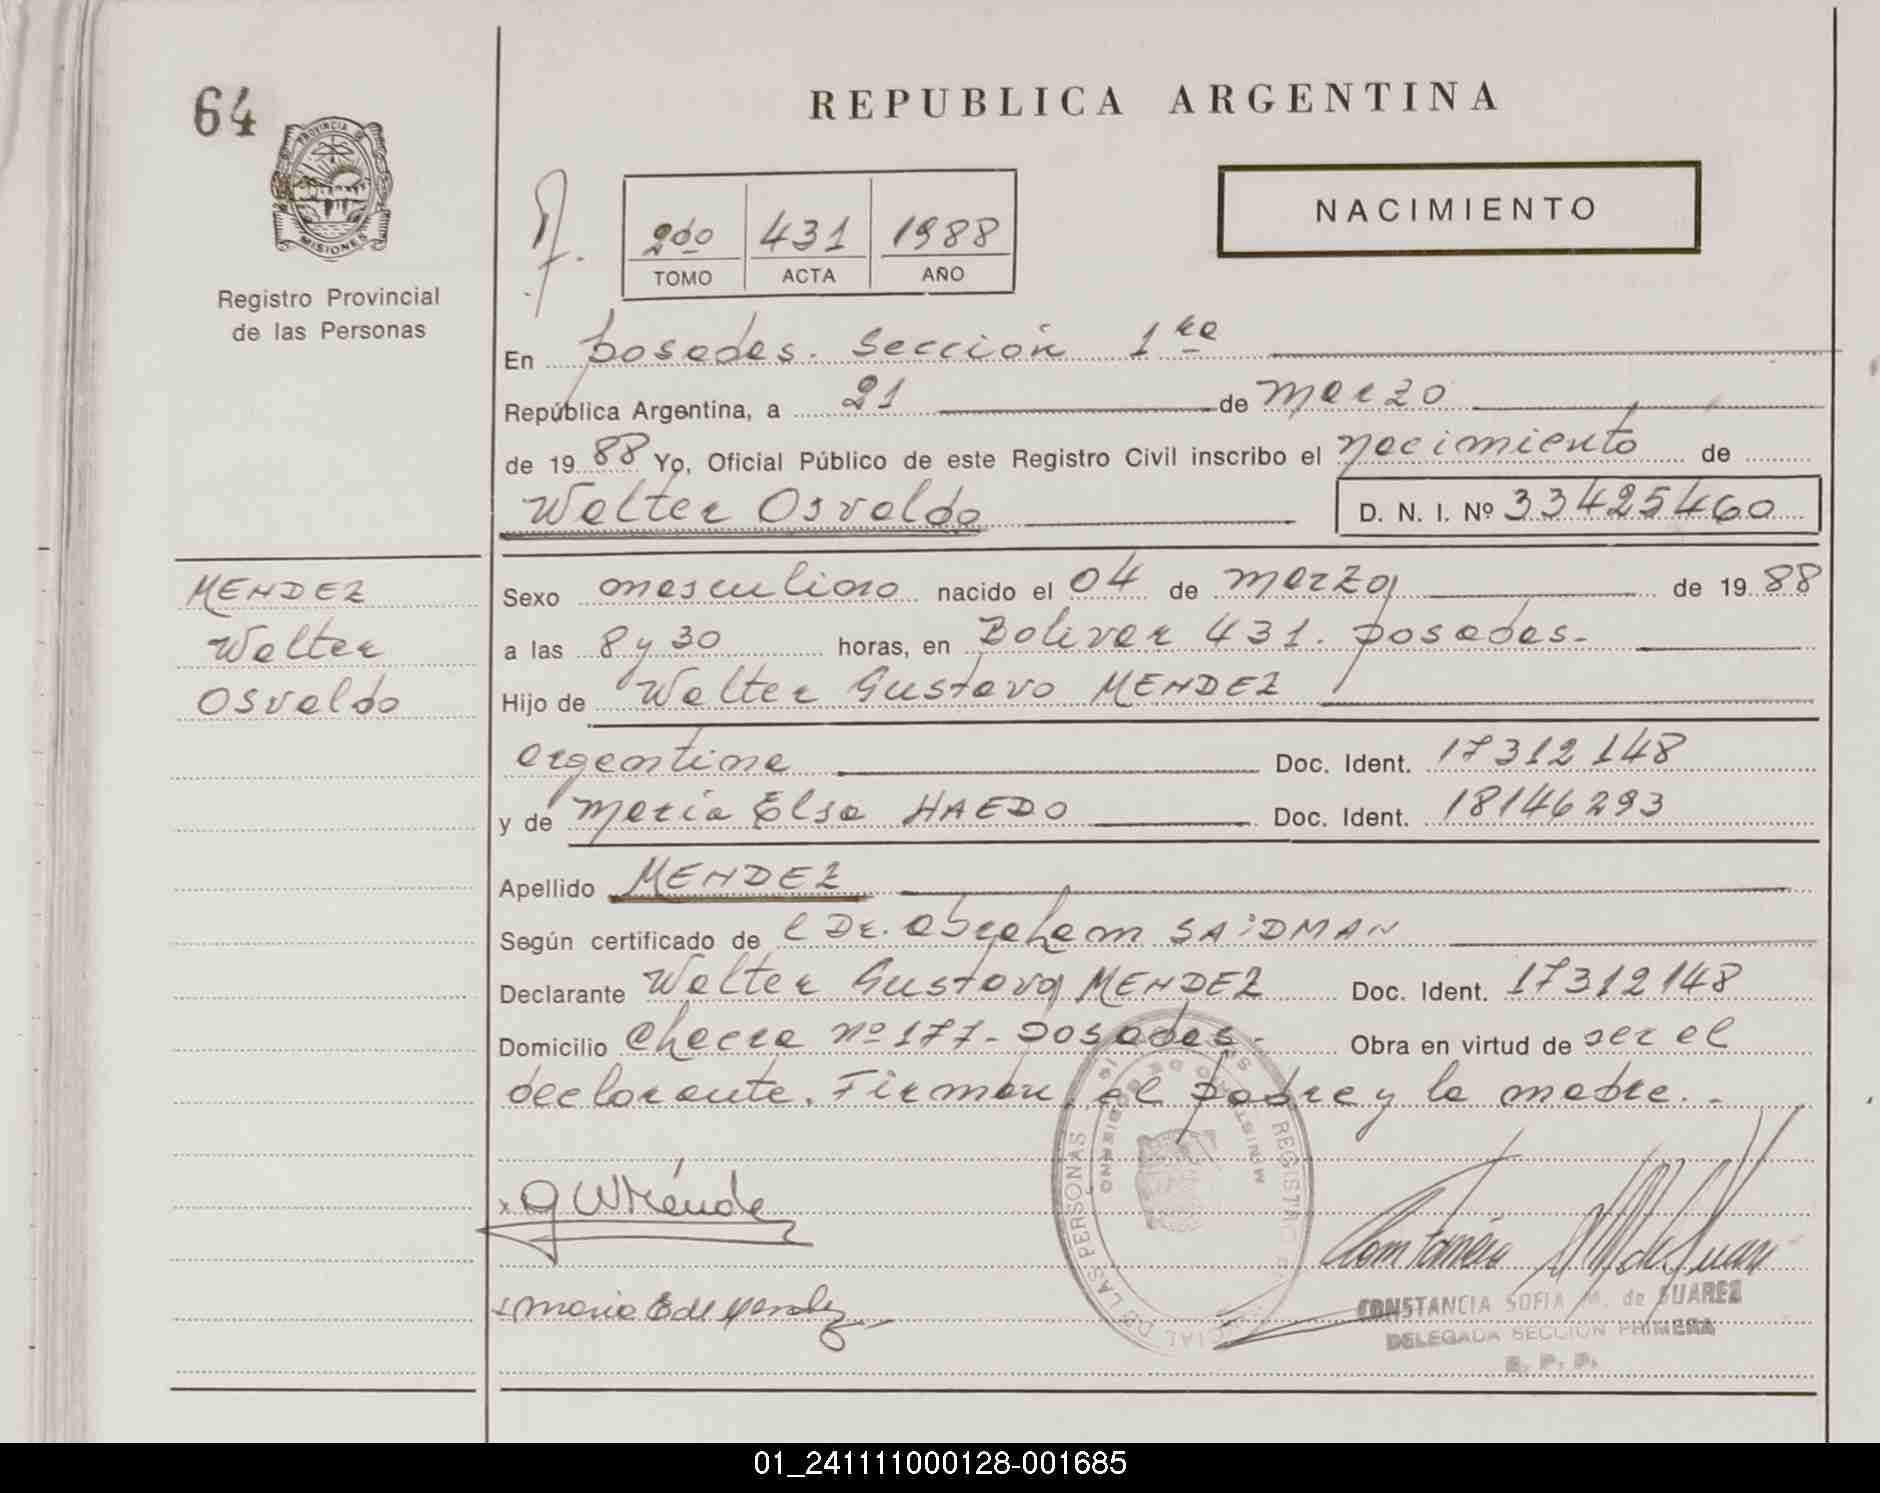 64
REPUBLICA ARGENTINA
PROVINCIA DE
MISIONES
Registro Provincial
de las Personas
2do 431 1988
TOMO ACTA AÑO
NACIMIENTO
En posadas. Sección 1ra
República Argentina, a 21 de marzo
de 1988 Yo, Oficial Público de este Registro Civil inscribo el nacimiento de
Walter Osvaldo D. N. I. Nº 33425460
MENDEZ
Walter
Osvaldo
Sexo masculino nacido el 04 de marzo de 1988
a las 8 y 30 horas, en Bolivar 431. posadas.
Hijo de Walter Gustavo MENDEZ
argentina Doc. Ident. 17312148
y de maria Elsa HAEDO Doc. Ident. 18146293
Apellido MENDEZ
Según certificado de l Dr. abraham SAIDMAN
Declarante Walter Gustavo MENDEZ Doc. Ident. 17312148
Domicilio Chacra nº 177- posadas. Obra en virtud de ser el
declarante. Firman el padre y la madre.
REGISTRO PROVINCIAL DE LAS PERSONAS
MINISTERIO DE GOBIERNO
CONSTANCIA SOFIA M. de SUAREZ
DELEGADA SECCION PRIMERA
R. P. P.
01_241111000128-001685